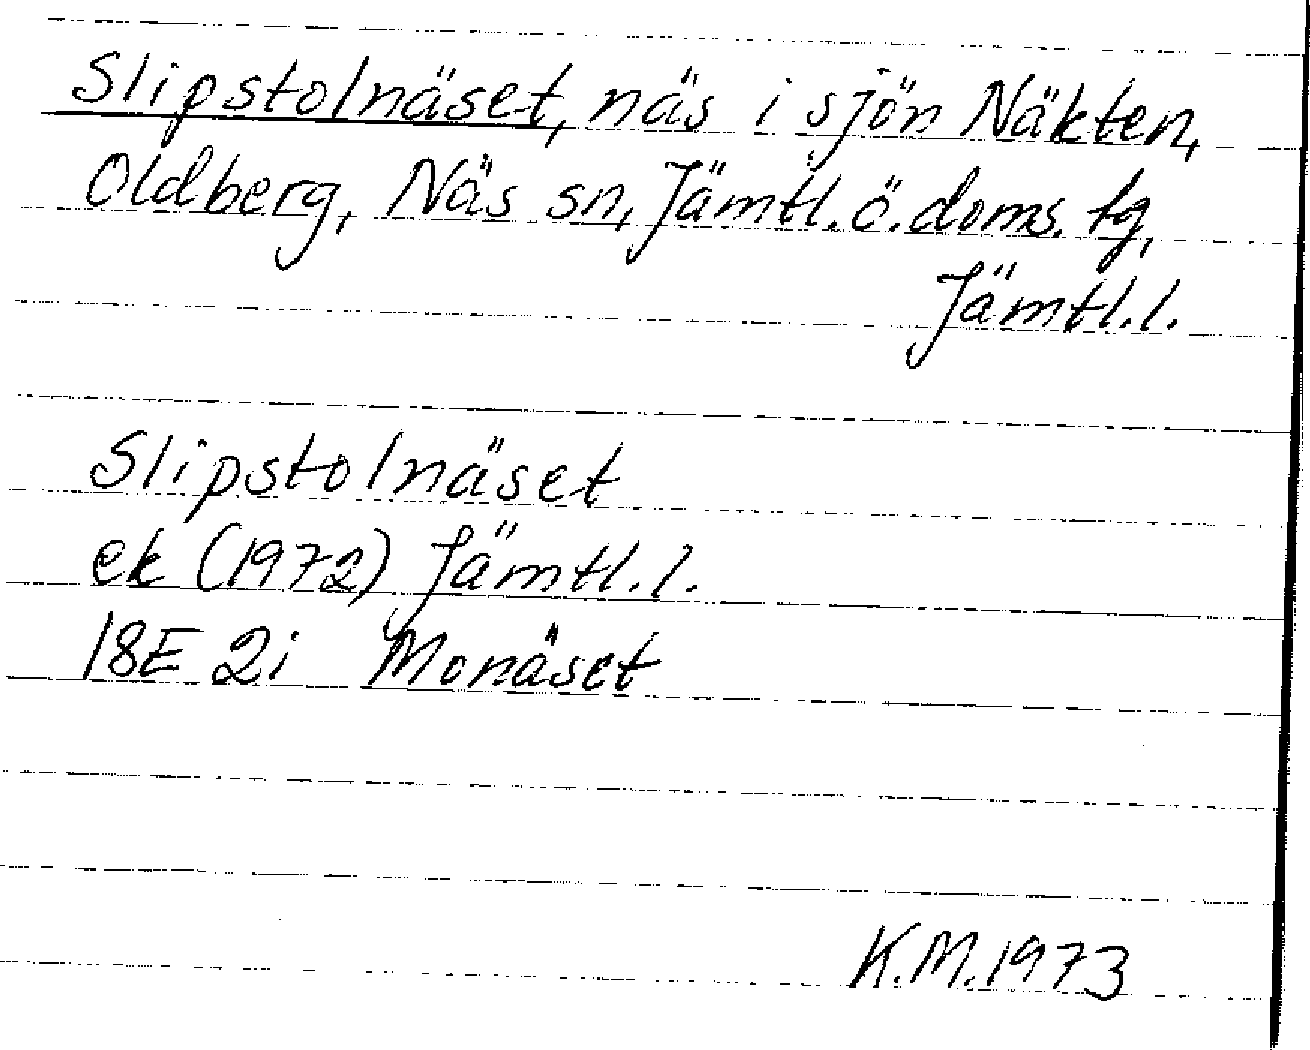 Slipstolnäset, näs i sjön Näkten,
Oldberg, Näs sn, Jämtl. ö. doms. tg,
Jämtl. l.
Slipstolnäset
ek (1972) Jämtl. l.
18E 2i Monäset
K.M. 1973